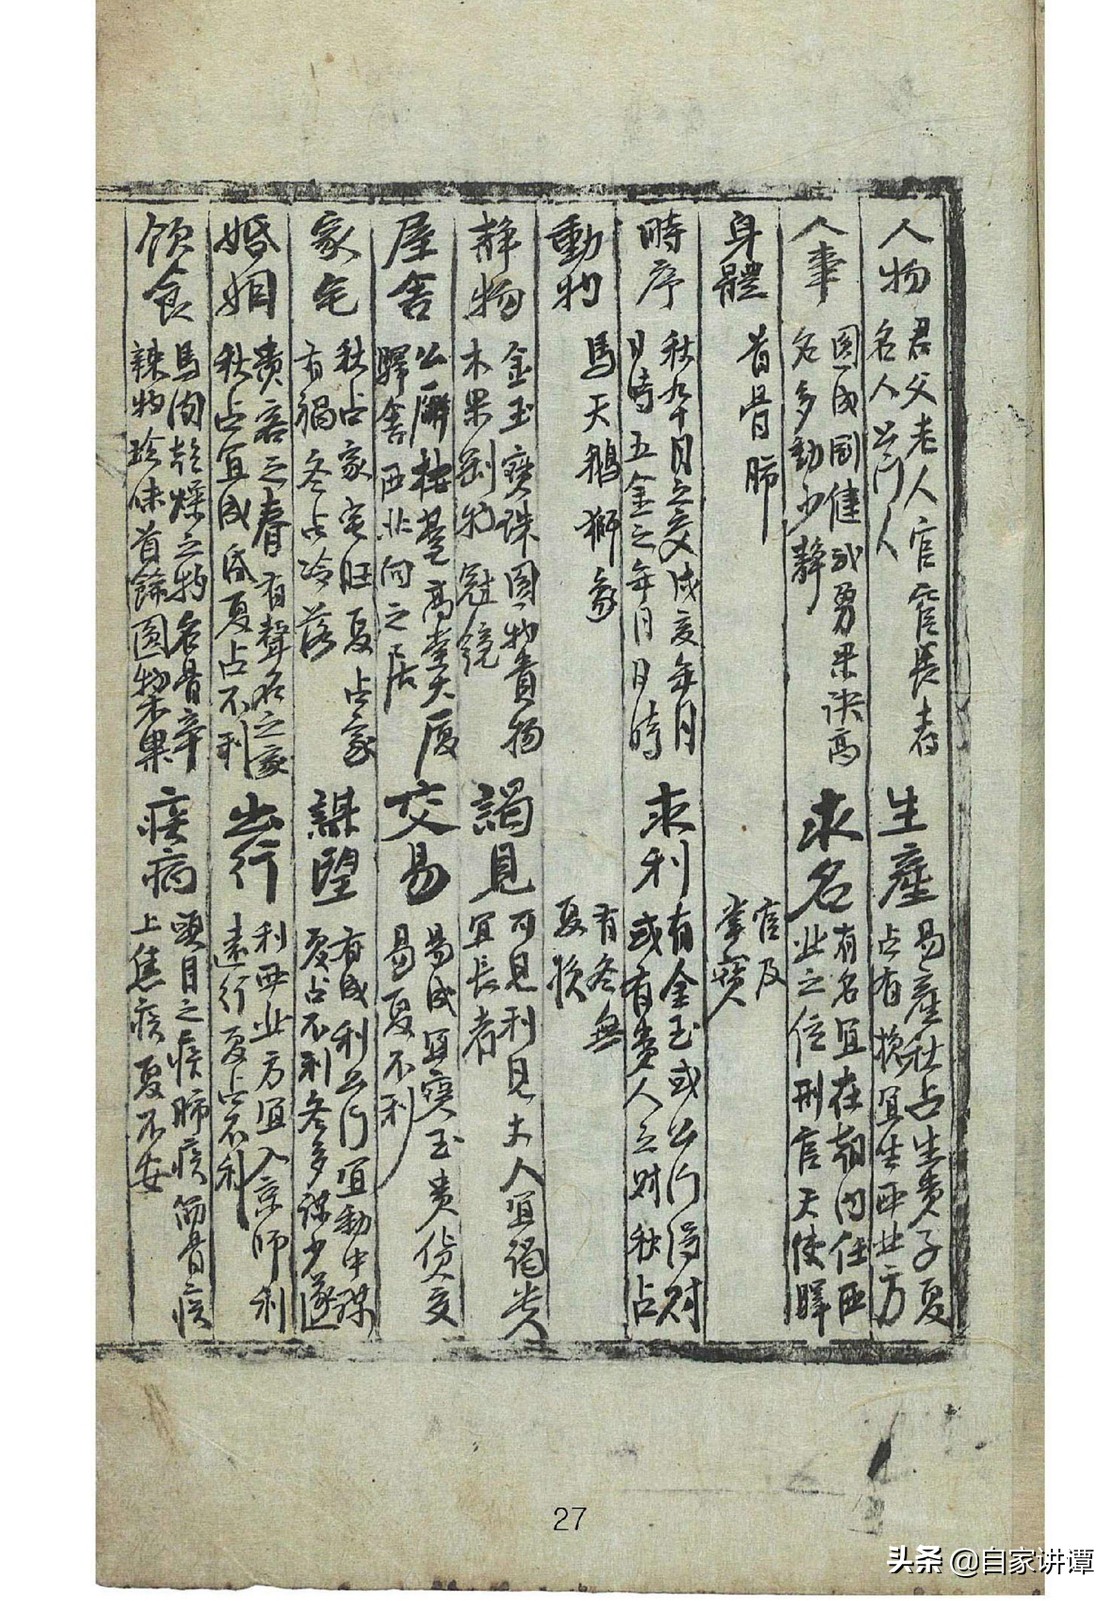 人物 君父老人官宦長者
名人公門人
生產 易產秋占生貴子夏
占有損宜坐西北方
人事 圓成剛健武勇果決高
名多動少靜
求名 有名宜在朝內任西
北之位刑官天使驛
身體 首骨肺
官及
掌寶
時序 秋九十月之交戌亥年月
日時五金之年月日時
求利 有金玉或公門得財
或有貴人之財秋占
動物 馬天鵝獅象
有冬無
夏損
靜物 金玉寶珠圓物貴物
木果剛物冠鏡
謁見 可見利見大人宜謁貴
宜長者
屋舍 公廨樓臺高堂大廈
驛舍西北向之居
交易 易成宜寶玉貴貨交
易夏不利
家宅 秋占家宅旺夏占家
有禍冬占冷落
謀望 有成利公門宜動中謀
夏占不利冬多謀少遂
婚姻 貴客之眷有聲名之家
秋占宜成昏夏占不利
出行 利西北方宜入京師利
遠行夏占不利
飲食 馬肉乾燥之物名骨辛
辣物珍味首餘圓物木果
疾病 頭目之疾肺疾筋骨疾
上焦疾夏不安
27
头条 @自家讲谭